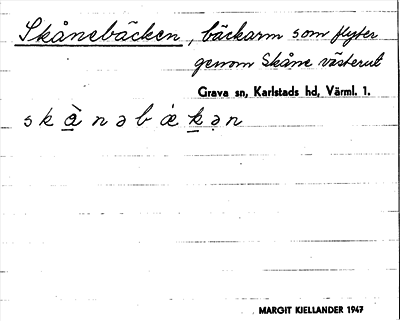 Skånebäcken, bäckarm som flyter
genom Skåne västerut
Grava sn, Karlstads hd, Värml. l.
s k å̀ n ə b æ̀ k ə n
MARGIT KJELLANDER 1947